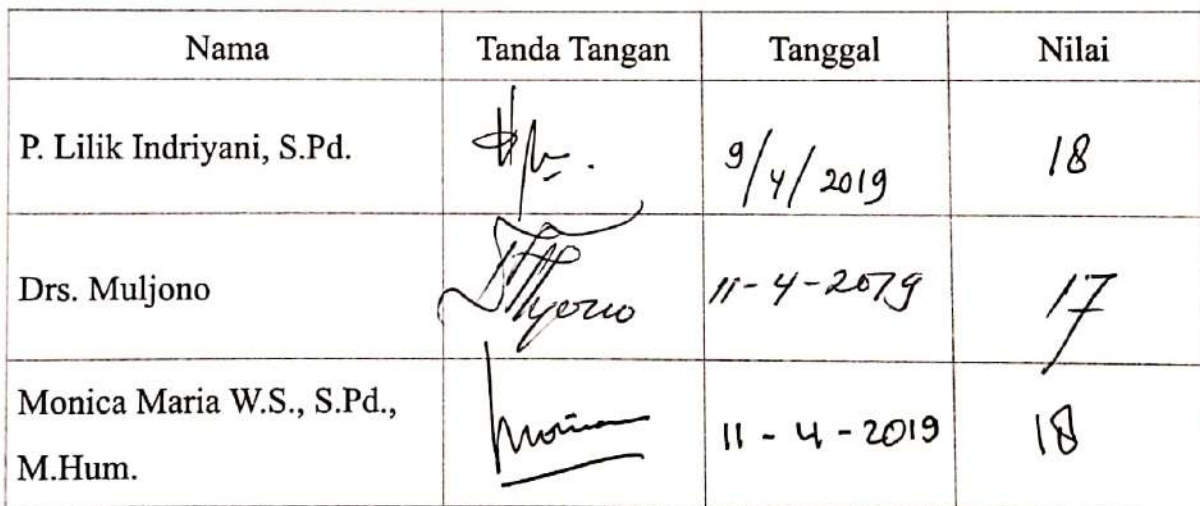 Nama Tanda Tangan Tanggal Nilai
P. Lilik Indriyani, S.Pd. 9/4/2019 18
Drs. Muljono 11-4-2019 17
Monica Maria W.S., S.Pd.,
M.Hum. 11 - 4 - 2019 18